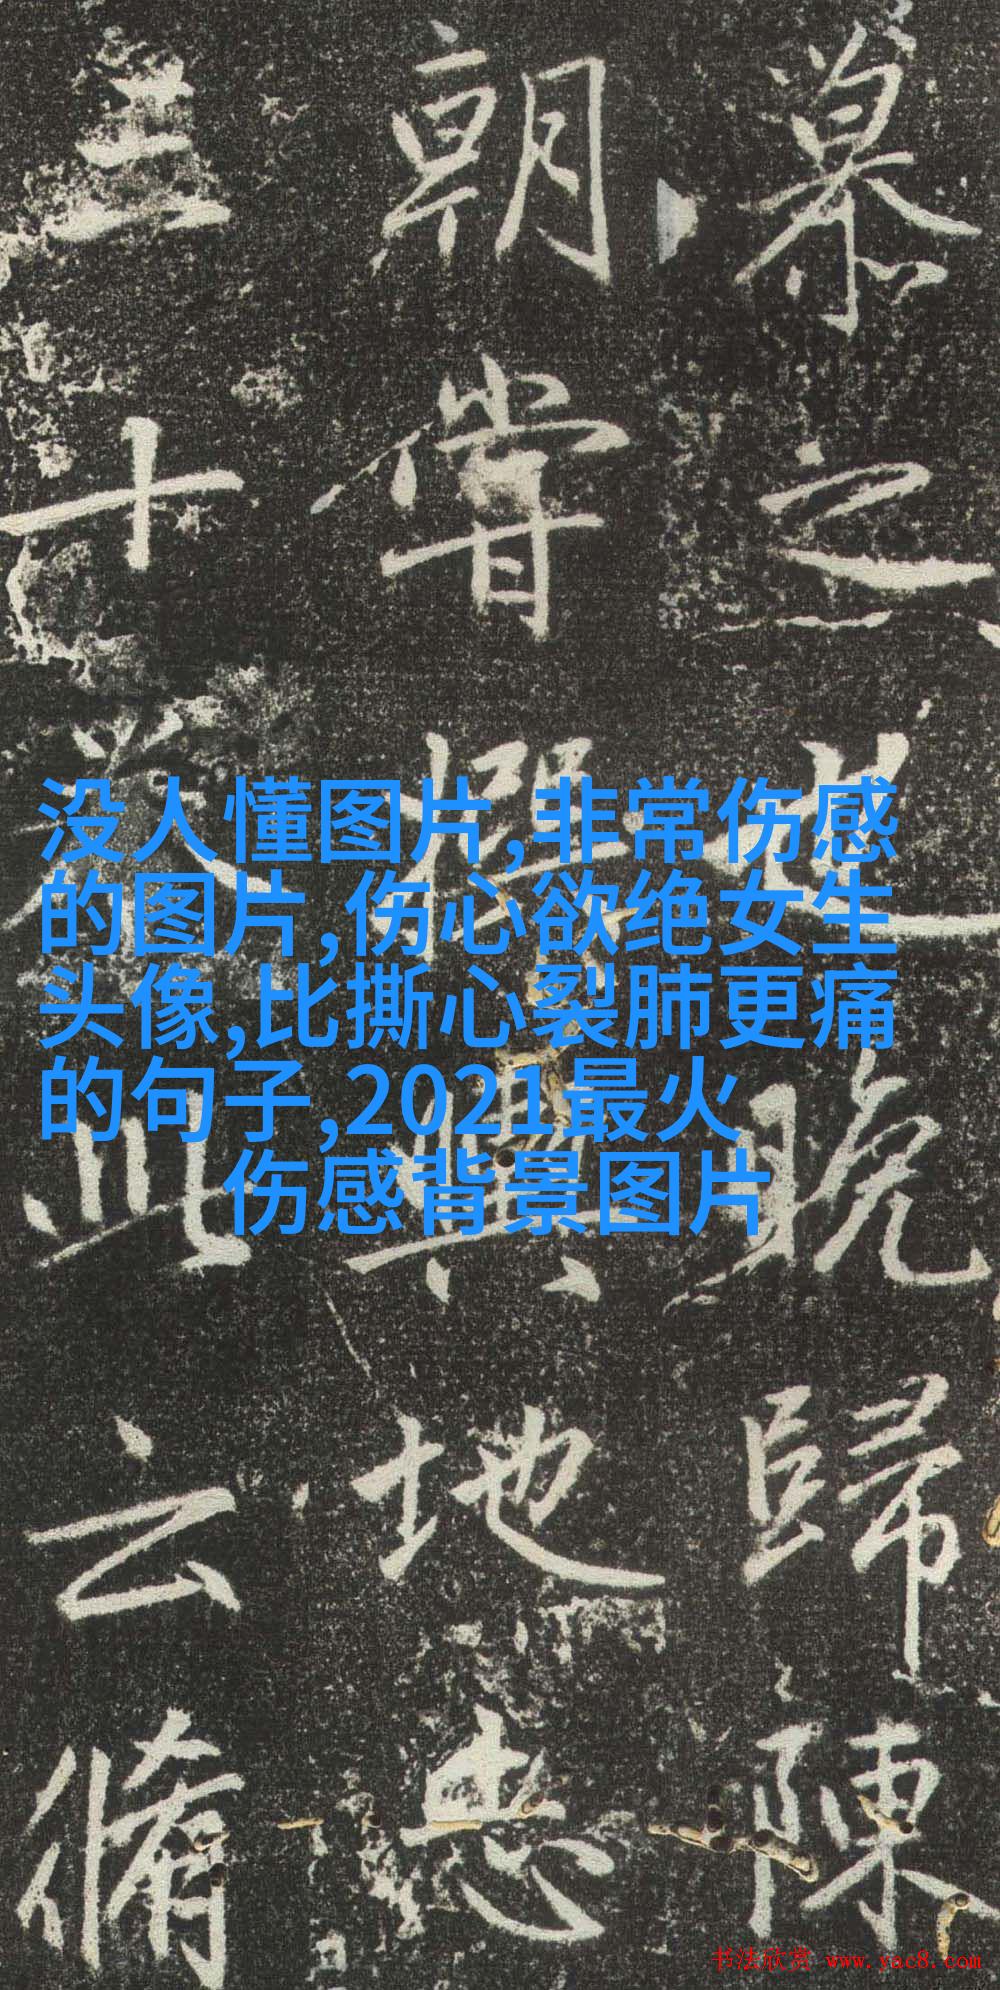 没人懂图片,非常伤感
的图片,伤心欲绝女生
头像,比撕心裂肺更痛
的句子,2021最火
伤感背景图片
慕之也晚歸陳
朝嘗撰輿地志
十此云脩
书法欣赏 www.yac8.com